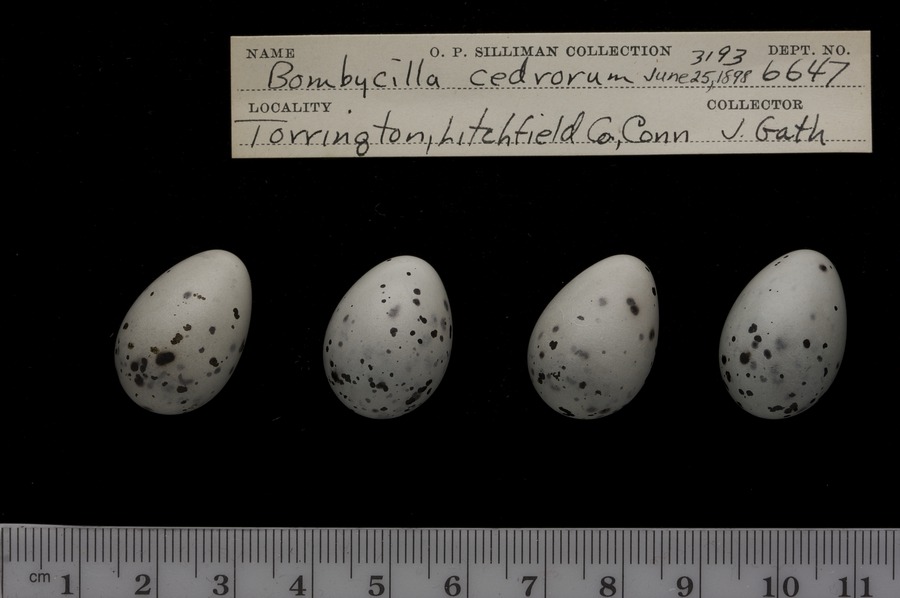 NAME O. P. SILLIMAN COLLECTION 3193 DEPT. NO.
Bombycilla cedrorum June 25, 1898 6647
LOCALITY COLLECTOR
Torrington, Litchfield Co, Conn J. Gath
cm 1 2 3 4 5 6 7 8 9 10 11